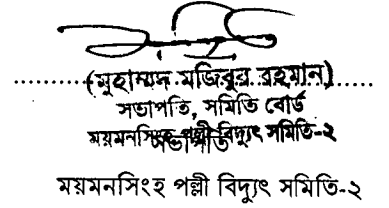 (মুহাম্মদ মজিবুর রহমান)
সভাপতি, সমিতি বোর্ড
ময়মনসিংহ পল্লী বিদ্যুৎ সমিতি-২
সভাপতি
ময়মনসিংহ পল্লী বিদ্যুৎ সমিতি-২